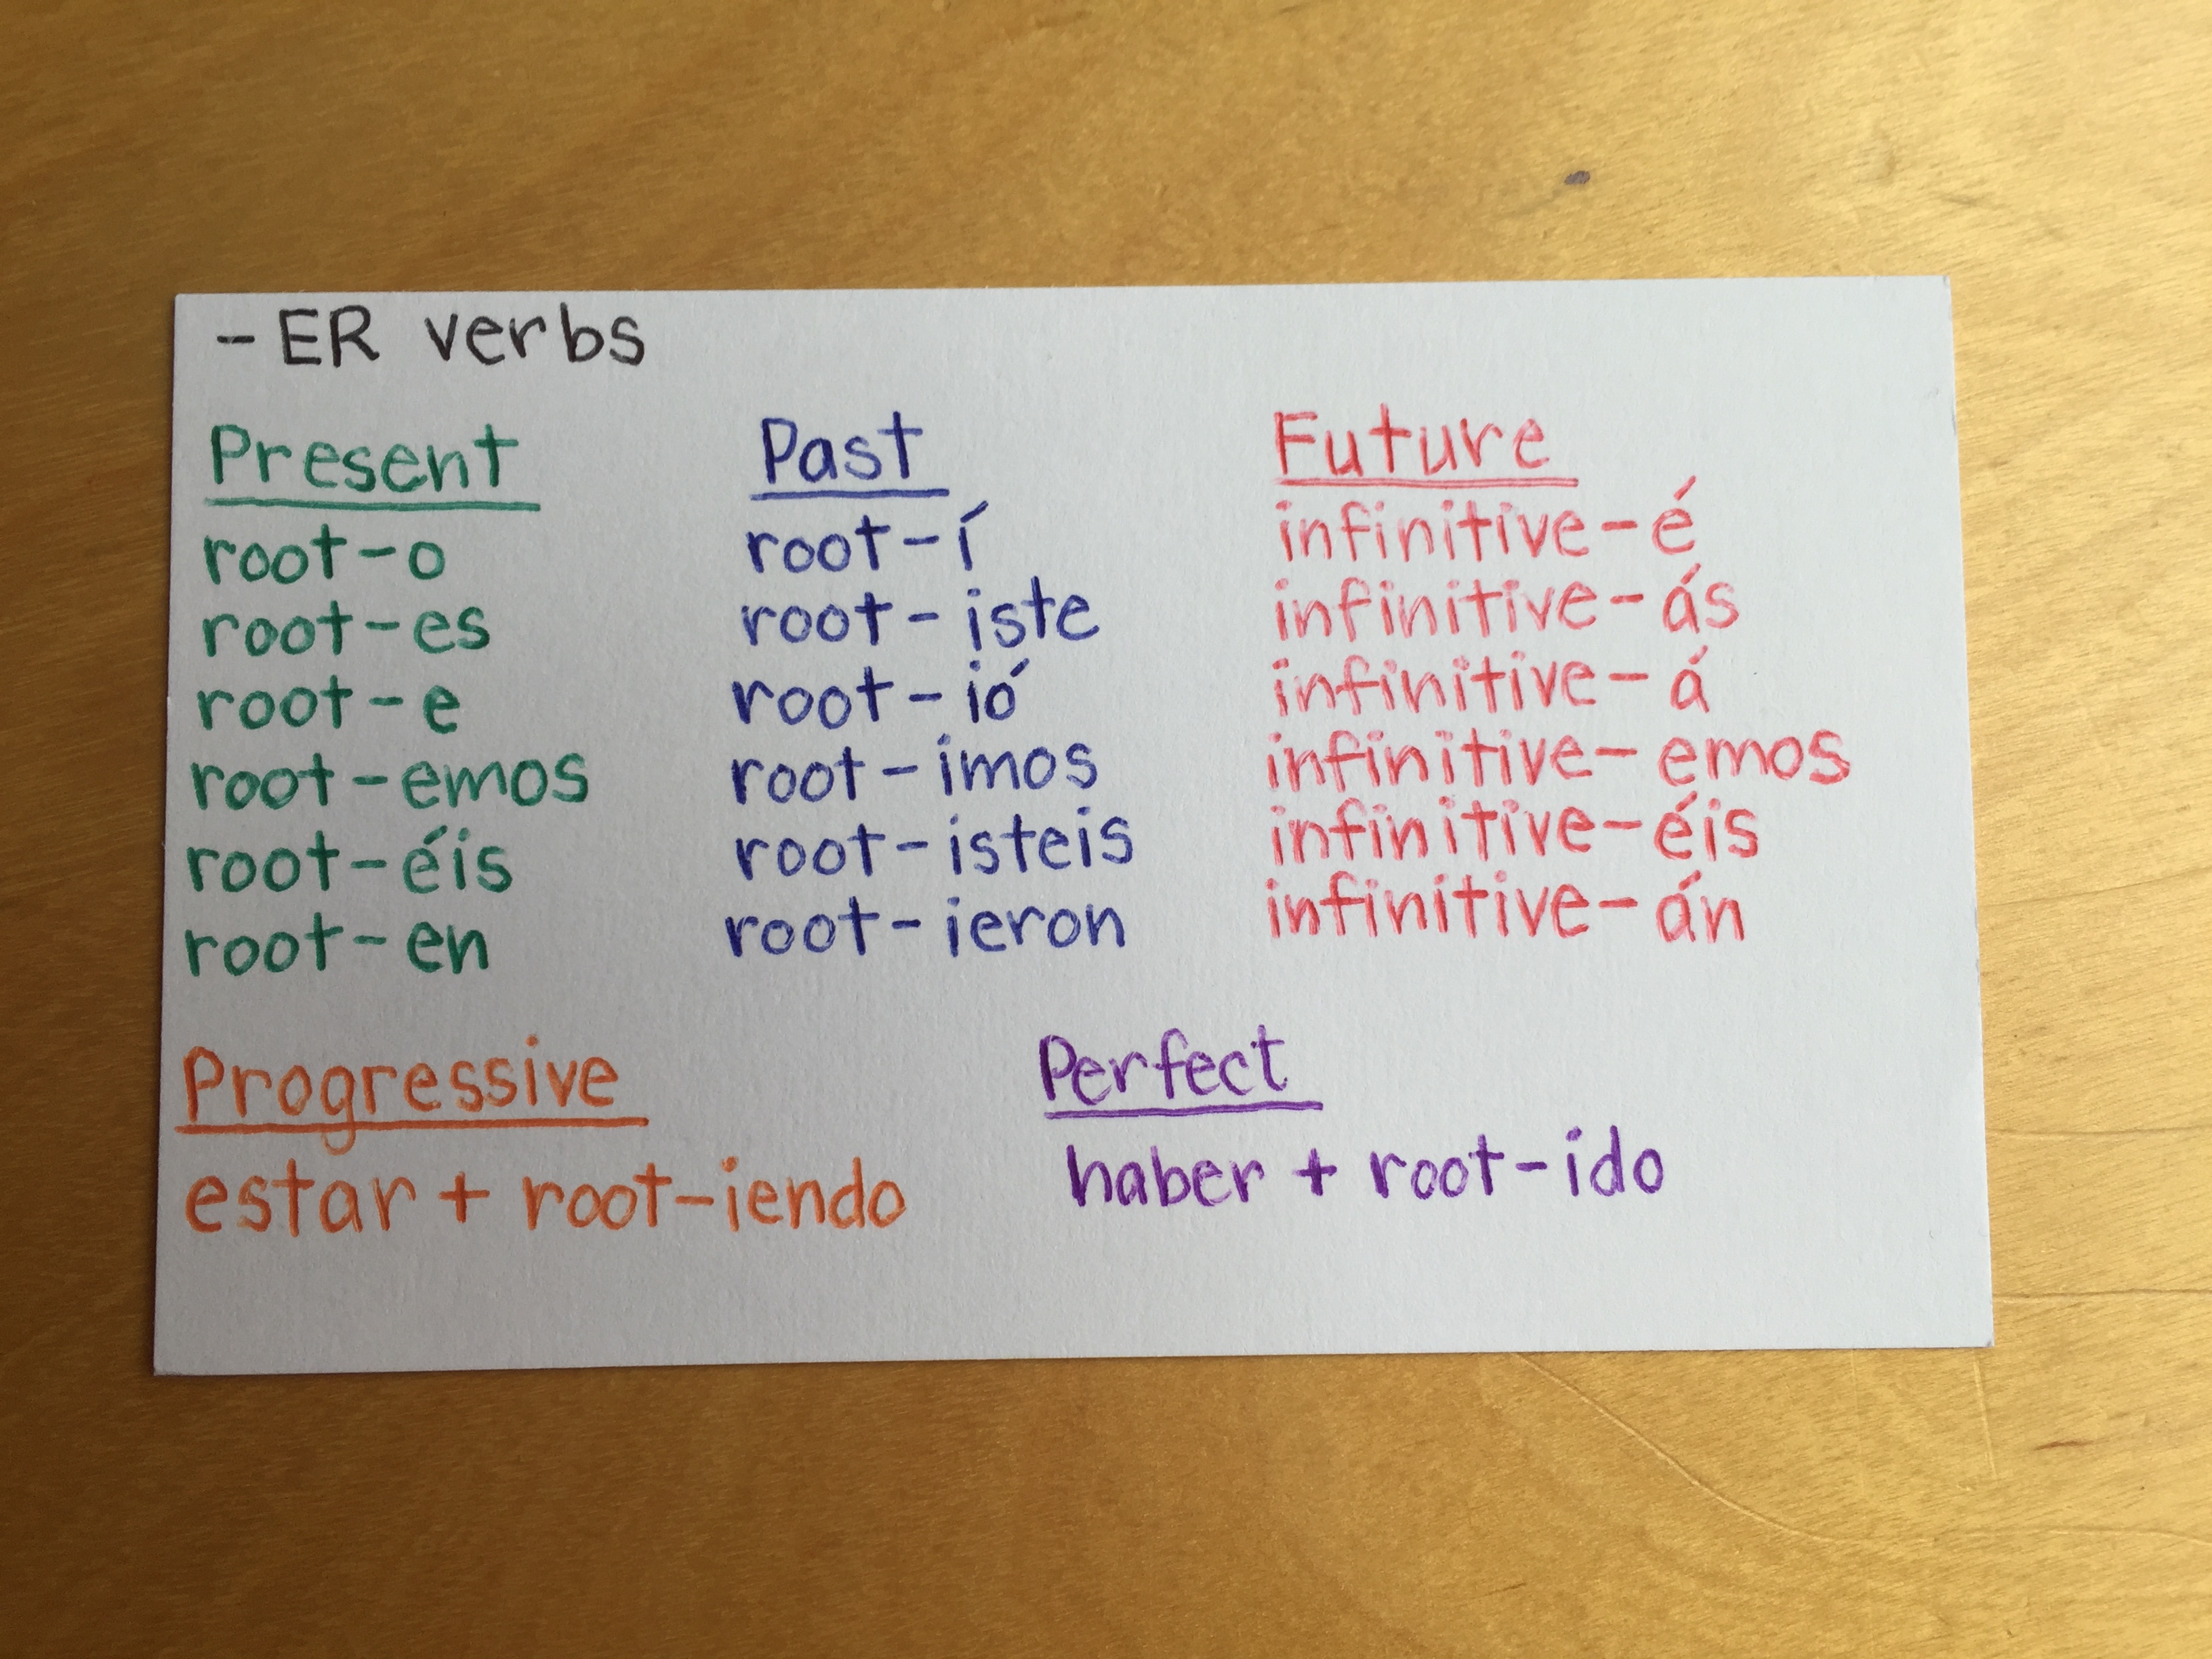 -ER verbs
Present
root-o
root-es
root-e
root-emos
root-éis
root-en
Past
root-í
root-iste
root-ió
root-imos
root-isteis
root-ieron
Future
infinitive-é
infinitive-ás
infinitive-á
infinitive-emos
infinitive-éis
infinitive-án
Progressive
estar + root-iendo
Perfect
haber + root-ido